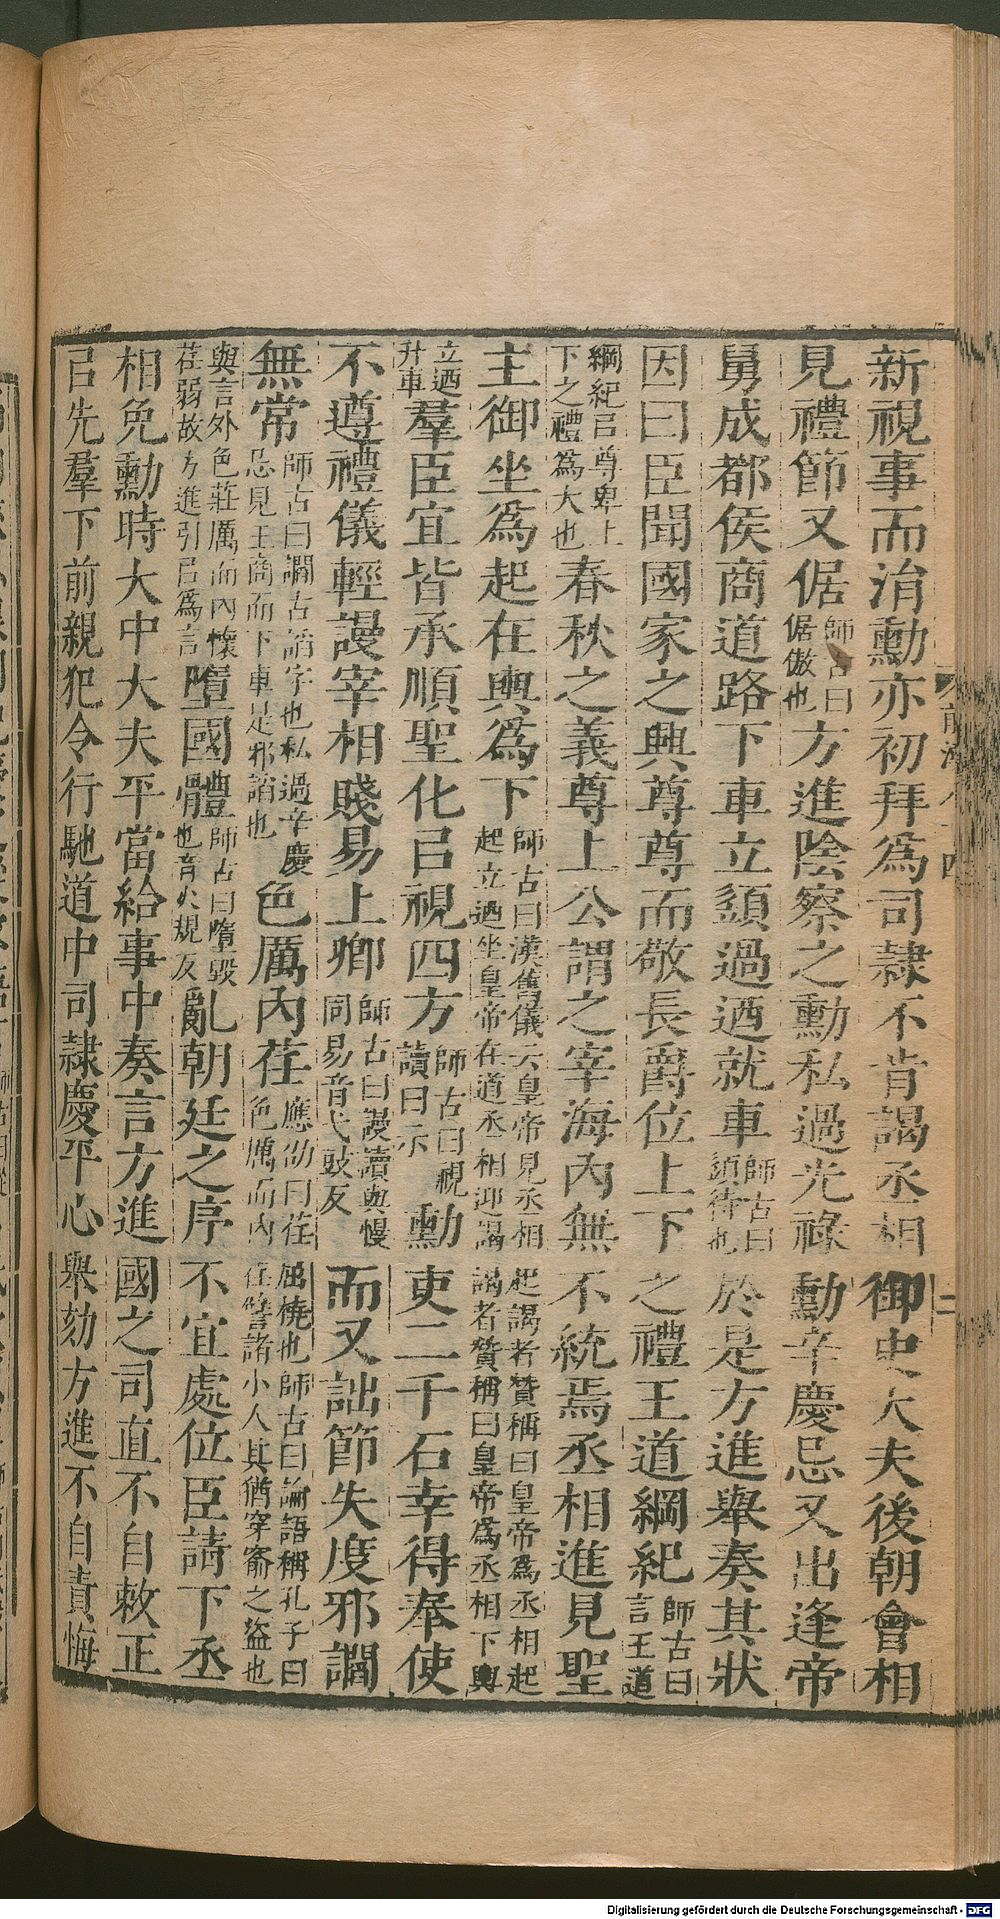 新視事而涓勳亦初拜爲司隸不肯謁丞相御史大夫後朝會相
見禮節又倨師古曰倨傲也方進陰察之勳私過光祿勳辛慶忌又出逢帝
舅成都侯商道路下車立頟過迺就車師古曰頟待也於是方進舉奏其狀
因曰臣聞國家之興尊尊而敬長爵位上下之禮王道綱紀師古曰言王道
綱紀㠯尊卑上下之禮爲大也春秋之義尊上公謂之宰海內無不統焉丞相進見聖
主御坐爲起在輿爲下師古曰漢舊儀云皇帝見丞相起謁者贊稱曰皇帝爲丞相起起立迺坐皇帝在道丞相迎謁謁者贊稱曰皇帝爲丞相下輿
立迺升車羣臣宜皆承順聖化㠯視四方師古曰視讀曰示勳吏二千石幸得奉使
不遵禮儀輕謾宰相賤易上卿師古曰謾讀與慢同易音弋豉反而又詘節失度邪讇
無常師古曰讇古諂字也私過辛慶忌見王商而下車是邪諂也色厲內荏應劭曰荏屈橈也師古曰論語稱孔子曰色厲而內荏譬諸小人其猶穿窬之盜也
與言外色莊厲而內懷荏弱故方進引㠯爲言墮國體師古曰墮毀也音火規反亂朝廷之序不宜處位臣請下丞
相免勳時大中大夫平當給事中奏言方進國之司直不自敕正
㠯先羣下前親犯令行馳道中司隸慶平心舉劾方進不自責悔
Digitalisierung gefördert durch die Deutsche Forschungsgemeinschaft - DFG